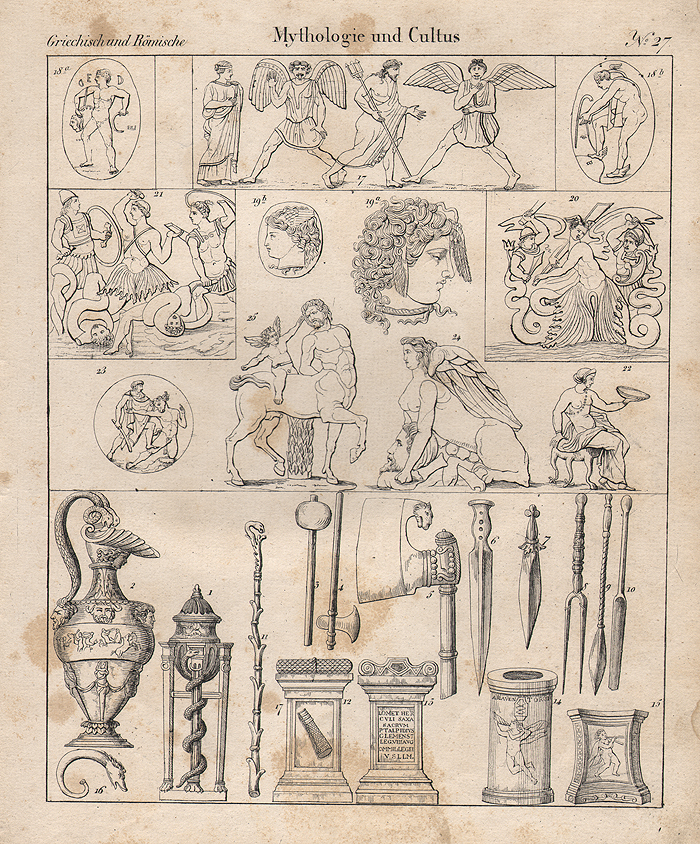 Griechisch und Römische
Mythologie und Cultus
No. 27
18a
17
18b
21
19b
19a
20
25
24
23
22
2
1
11
3
4
5
6
7
9
10
17
12
13
14
15
16
IOMET HER
CVLI SAXA
SACRVM
P TALPIDIVS
CLEMENS
LEG VIII AVG
V.S.L.L.M.